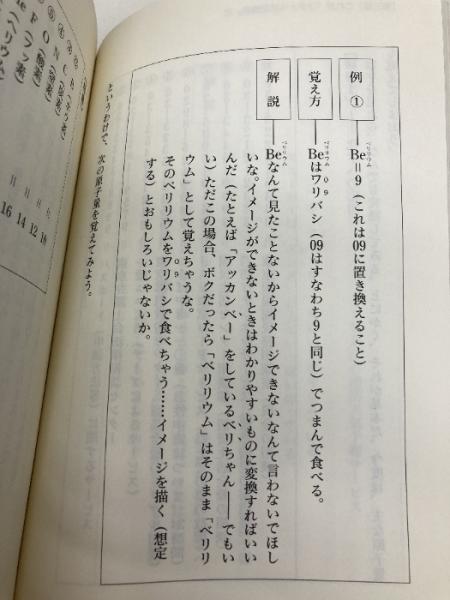 例①
Be=9（これは09に置き換えること）
ベリリウム
覚え方
Beはワリバシ（09はすなわち9と同じ）でつまんで食べる。
ベリリウム
０９
解説
Beなんて見たことないからイメージできないなんて言わないでほし
ベリリウム
いな。イメージができないときはわかりやすいものに変換すればいい
んだ（たとえば「アッカンベー」をしているベリちゃん――でもい
い）ただこの場合、ボクだったら「ベリリウム」はそのまま「ベリリ
ウム」として覚えちゃうな。
そのベリリウムをワリバシで食べちゃう……イメージを描く（想定
０９
する）とおもしろいじゃないか。
というわけで、次の原子量を覚えてみよう。
16 14 12